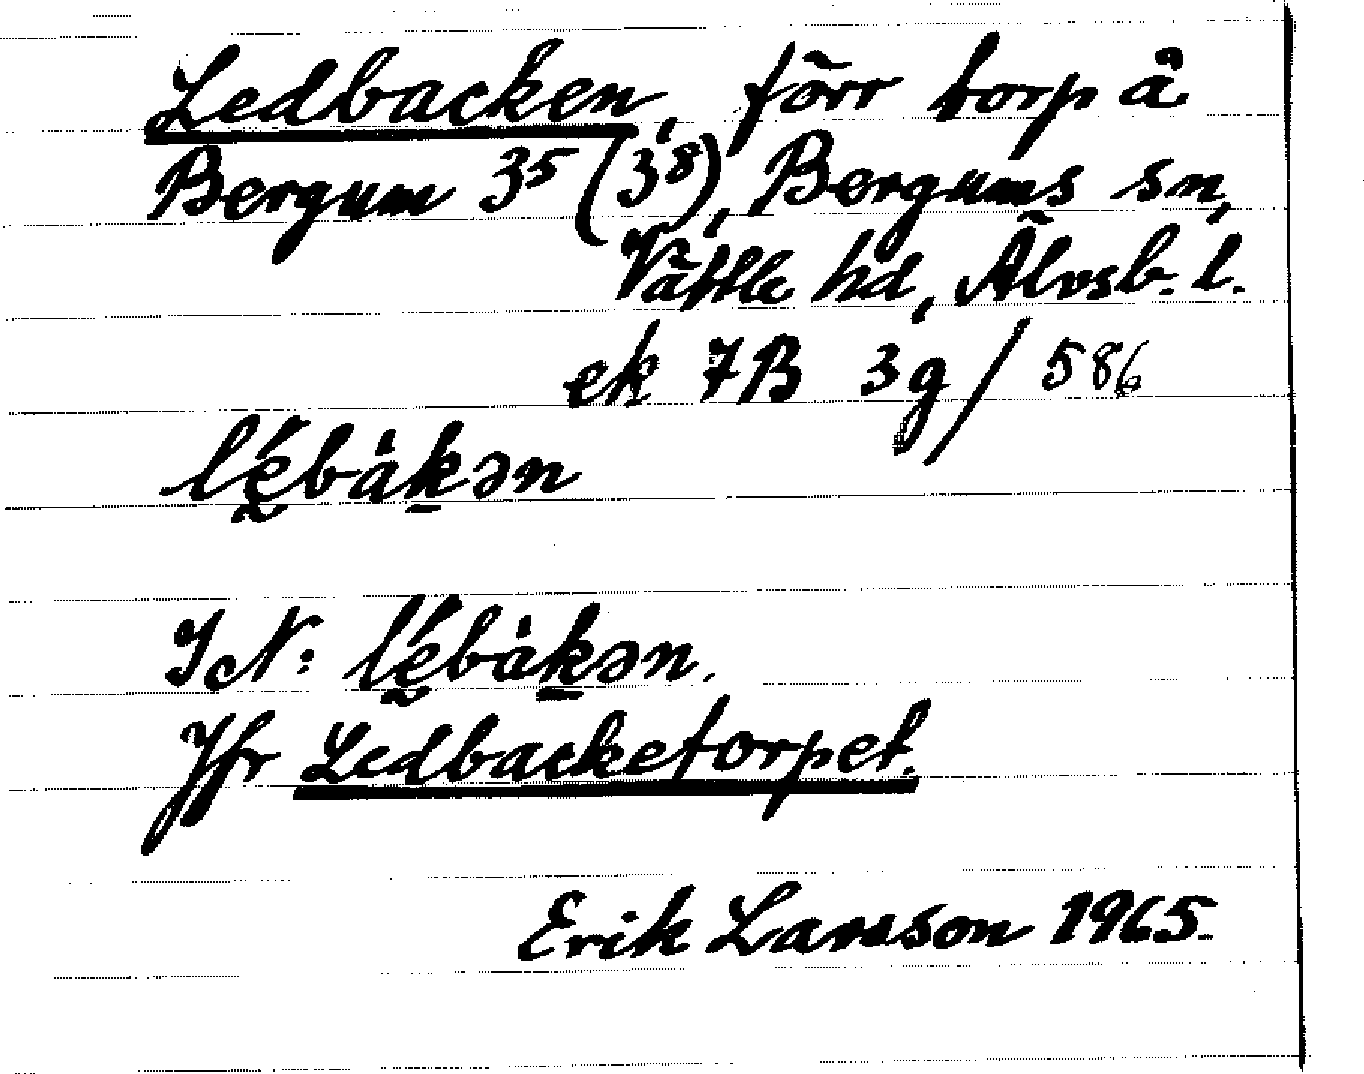 Ledbacken, förr torp å
Bergum 3⁵ (3⁸), Bergums sn,
Vättle hd, Älvsb. l.
ek 7B 3g / 586
lḛ́bàk̠ən
IN: lḛ́bàk̠ən.
Jfr Ledbacketorpet.
Erik Larsson 1965.